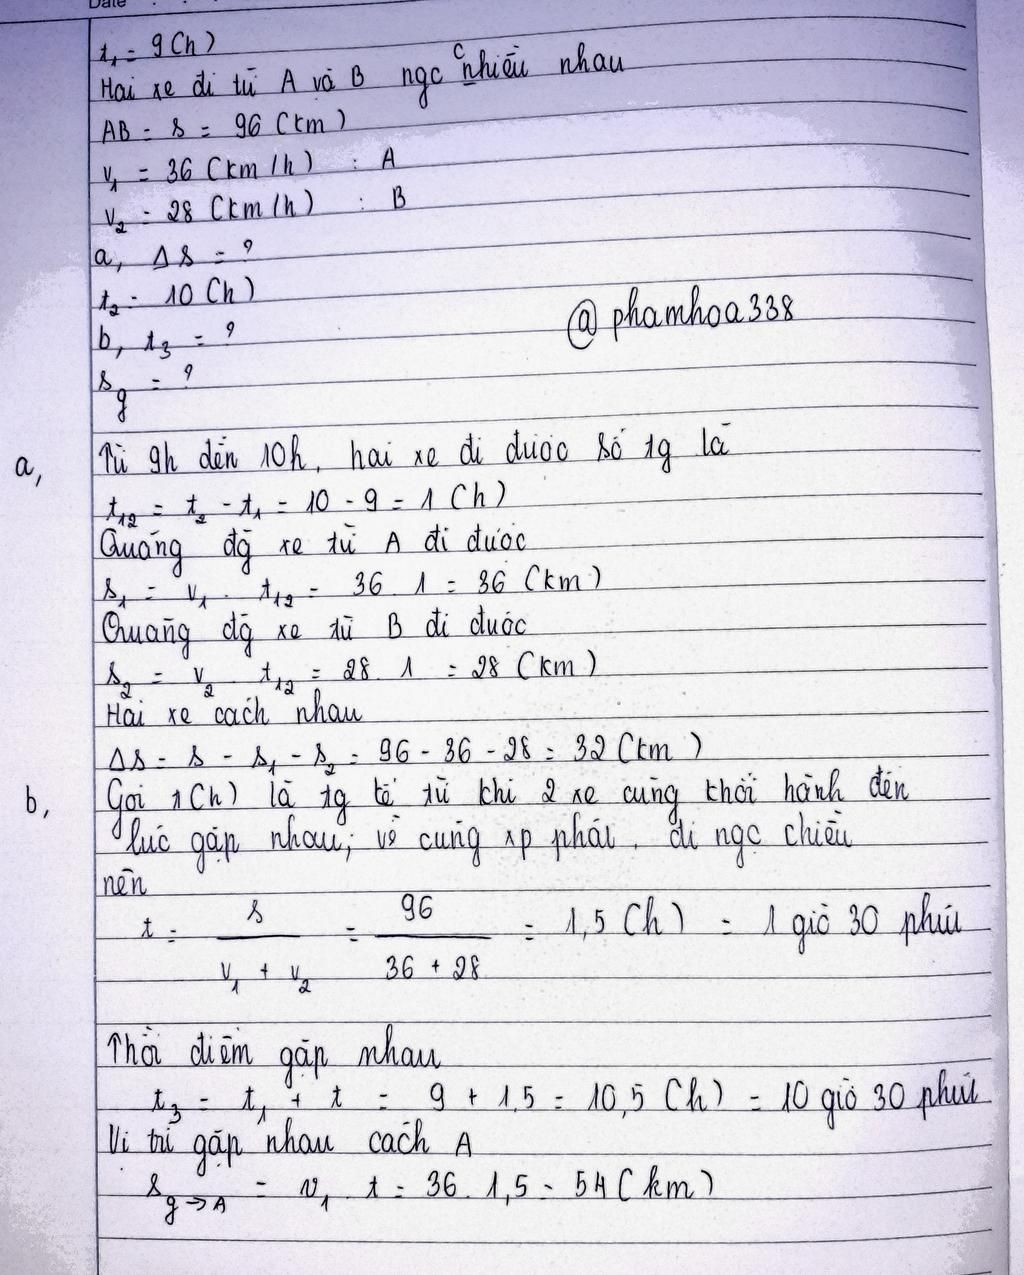 Date
t₁ = 9 (h)
Hai xe đi từ A và B ngc chiều nhau
AB = s = 96 (km)
v₁ = 36 (km/h) : A
v₂ = 28 (km/h) : B
a, Δs = ?
t₂ = 10 (h)
b, t₃ = ?
@phamhoa338
s_g = ?
a, Từ 9h đến 10h, hai xe đi được số tg là
t₁₂ = t₂ - t₁ = 10 - 9 = 1 (h)
Quãng đg xe từ A đi được
s₁ = v₁ . t₁₂ = 36 . 1 = 36 (km)
Quãng đg xe từ B đi được
s₂ = v₂ t₁₂ = 28 . 1 = 28 (km)
Hai xe cách nhau
Δs = s - s₁ - s₂ = 96 - 36 - 28 = 32 (km)
b, Gọi t (h) là tg kể từ khi 2 xe cùng khởi hành đến
lúc gặp nhau; vì cùng xp phát, đi ngc chiều
nên
t = s / (v₁ + v₂) = 96 / (36 + 28) = 1,5 (h) = 1 giờ 30 phút
Thời điểm gặp nhau
t₃ = t₁ + t = 9 + 1,5 = 10,5 (h) = 10 giờ 30 phút
Vị trí gặp nhau cách A
s_g→A = v₁ . t = 36 . 1,5 = 54 (km)